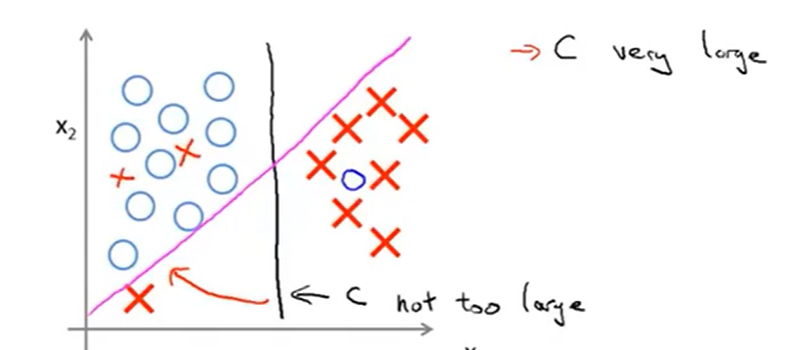 → C very large
x₂
← C not too large